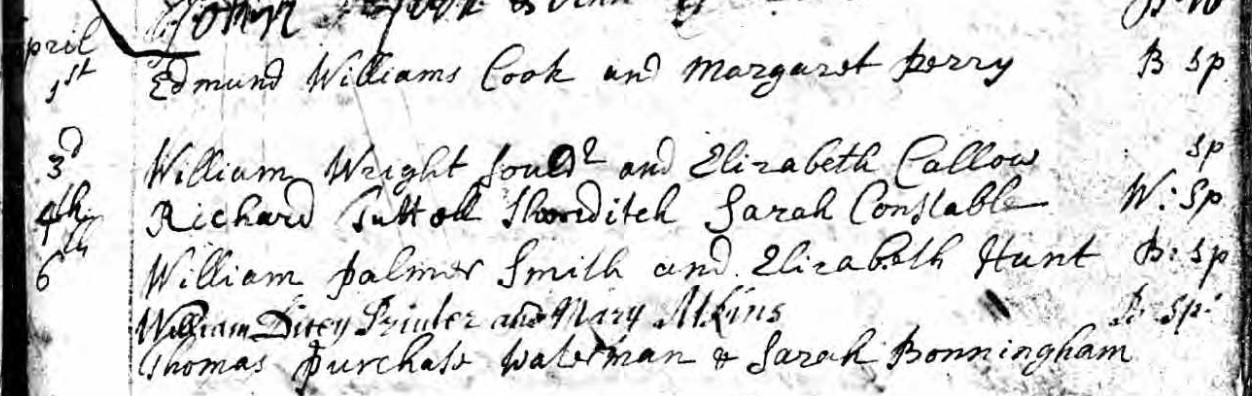 John
pril
1st Edmund Williams Cook and Margaret Perry B Sp
3d William Wright Sould2 and Elizabeth Callow Sp
4th Richard Tuttoll Shorditch Sarah Constable W: Sp
6th William Palmer Smith and Elizabeth Hunt B: Sp
William Ditey Printer and Mary Atkins B: Sp:
Thomas Purchase Waterman & Sarah Bonningham